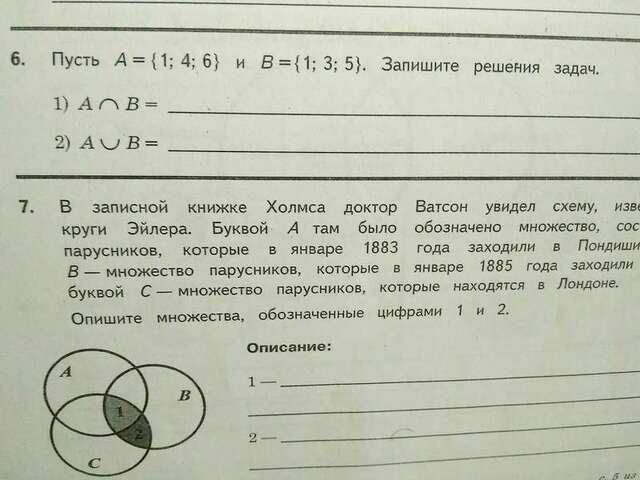 6. Пусть A = {1; 4; 6} и B = {1; 3; 5}. Запишите решения задач.
1) A ∩ B =
2) A ∪ B =
7. В записной книжке Холмса доктор Ватсон увидел схему, изве
круги Эйлера. Буквой A там было обозначено множество, сос
парусников, которые в январе 1883 года заходили в Пондиши
B — множество парусников, которые в январе 1885 года заходили
буквой C — множество парусников, которые находятся в Лондоне.
Опишите множества, обозначенные цифрами 1 и 2.
Описание:
A
B
1 —
1
2
2 —
C